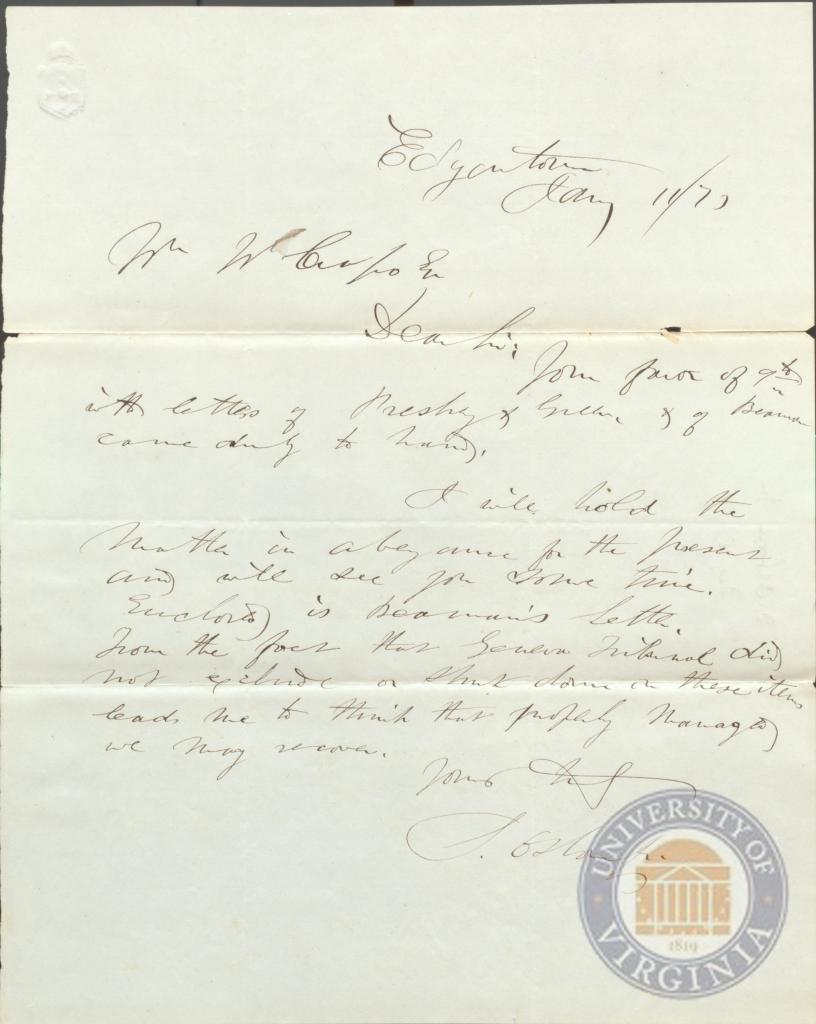 Edgartown
Jany 11/73
Wm W Crapo Esq
Dear Sir;
Your favor of 9th
with letters of Presby & Green & of Beaman
came duly to hand.
I will hold the
Matter in abeyance for the present
and will see you some time.
Enclosed is Beaman's letter.
From the fact that Geneva Tribunal did
not exclude or strik down on these items
leads me to think that properly managed
we may recover.
Yours
S. Osborn Jr.
UNIVERSITY OF VIRGINIA
1819